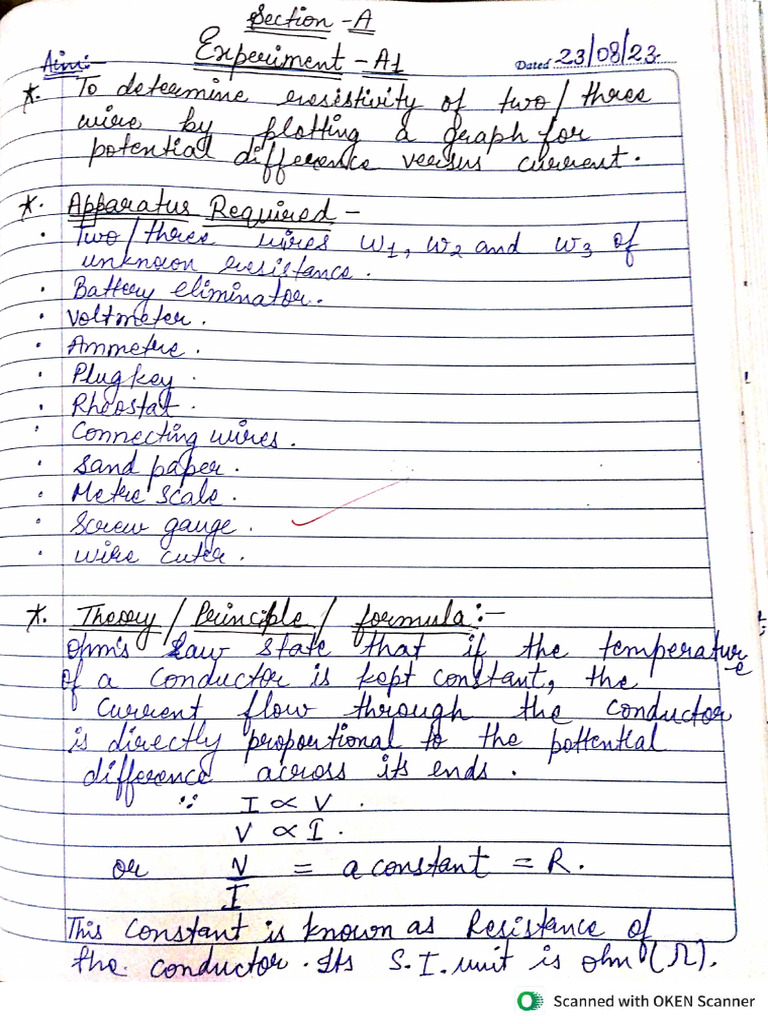 Section - A
Experiment - A1
Dated 23/08/23.
Aim:-
*. To determine resistivity of two/three
wire by plotting a graph for
potential difference versus current.
*. Apparatus Required -
· Two/three wires W1, W2 and W3 of
unknown resistance.
· Battery eliminator.
· Voltmeter.
· Ammetre.
· Plug key.
· Rheostat.
· Connecting wires.
· Sand paper.
· Metre scale.
· Screw gauge.
· wire cuter.
*. Theory / Principle / formula:-
Ohm's Law state that if the temperature
of a conductor is kept constant, the
current flow through the conductor
is directly proportional to the pottential
difference across its ends.
∵ I ∝ V.
V ∝ I.
or V/I = a constant = R.
This constant is known as Resistance of
the conductor. Its S.I. unit is ohm (Ω).
Scanned with OKEN Scanner